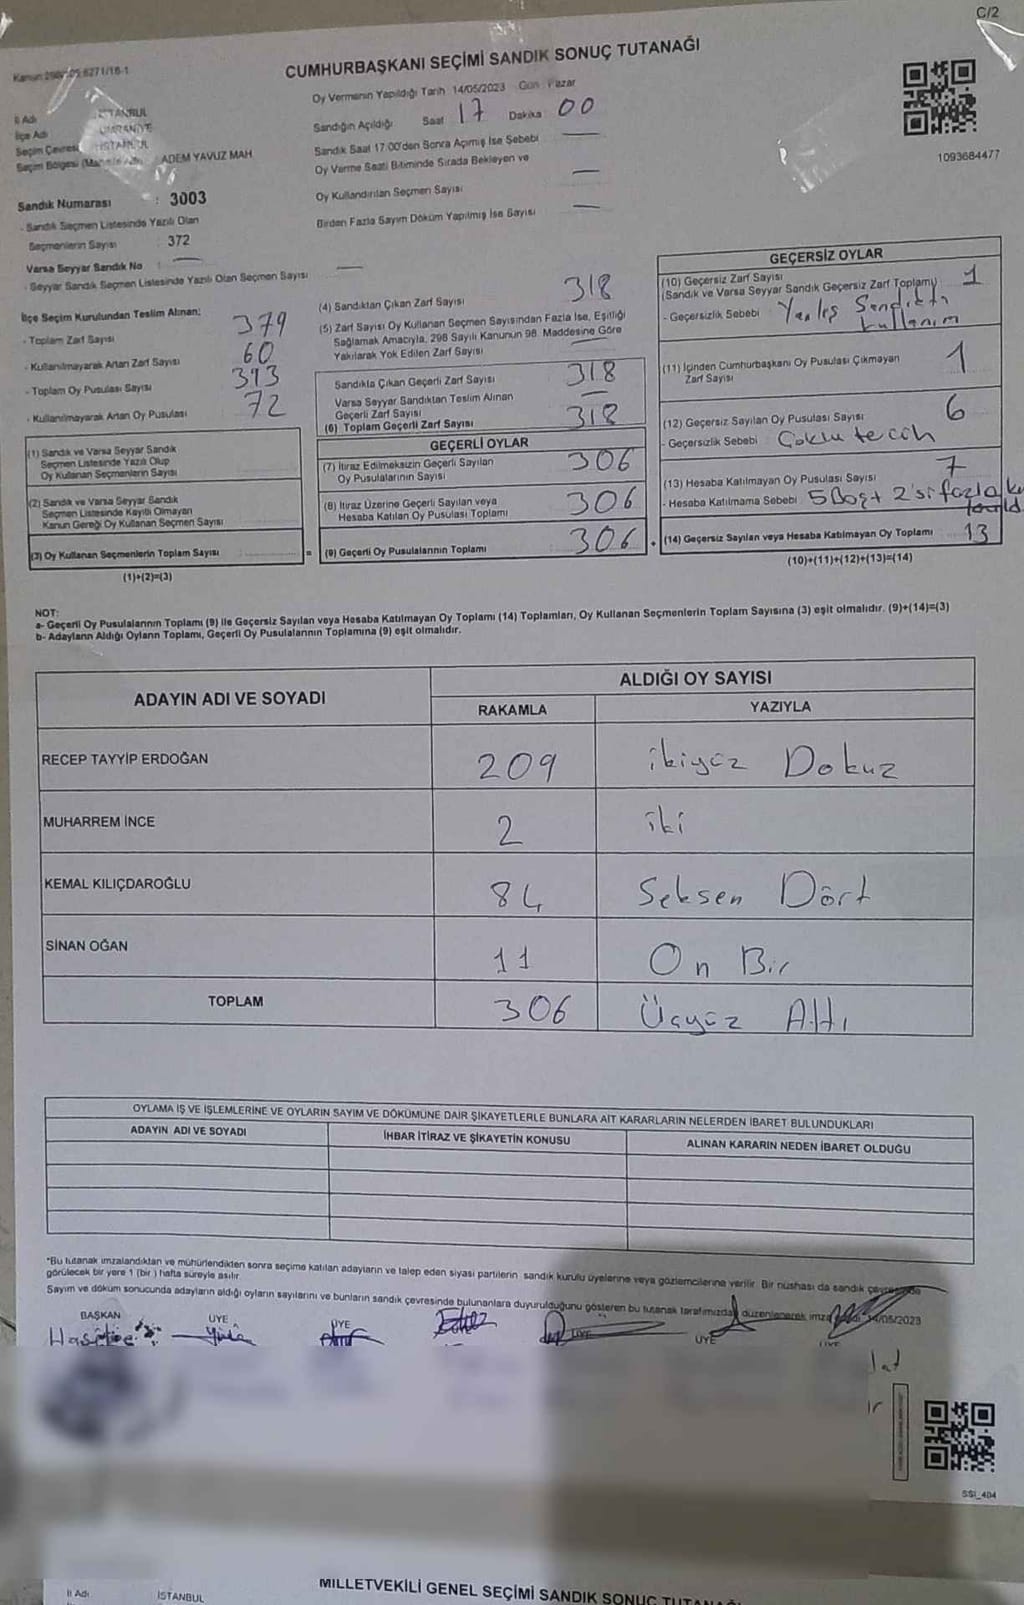 C/2
CUMHURBAŞKANI SEÇİMİ SANDIK SONUÇ TUTANAĞI
Oy Vermenin Yapıldığı Tarih 14/05/2023 Gün Pazar
İl Adı İSTANBUL
İlçe Adı ÜMRANİYE
Seçim Çevresi İSTANBUL
Seçim Bölgesi ADEM YAVUZ MAH
Sandık Numarası : 3003
- Sandık Seçmen Listesinde Yazılı Olan
Seçmenlerin Sayısı : 372
Varsa Seyyar Sandık No
- Seyyar Sandık Seçmen Listesinde Yazılı Olan Seçmen Sayısı
Sandığın Açıldığı Saat 17 Dakika 00
Sandık Saat 17:00'den Sonra Açımış İse Sebebi
Oy Verme Saati Bitiminde Sırada Bekleyen ve
Oy Kullandırılan Seçmen Sayısı
Birden Fazla Sayım Döküm Yapılmış İse Sayısı
1093684477
İlçe Seçim Kurulundan Teslim Alınan;
- Toplam Zarf Sayısı 379
- Kullanılmayarak Artan Zarf Sayısı 60
- Toplam Oy Pusulası Sayısı 393
- Kullanılmayarak Artan Oy Pusulası 72
(1) Sandık ve Varsa Seyyar Sandık
Seçmen Listesinde Yazılı Olup
Oy Kullanan Seçmenlerin Sayısı
(2) Sandık ve Varsa Seyyar Sandık
Seçmen Listesinde Kayıtlı Olmayan
Kanun Gereği Oy Kullanan Seçmen Sayısı
(3) Oy Kullanan Seçmenlerin Toplam Sayısı
(1)+(2)=(3)
(4) Sandıktan Çıkan Zarf Sayısı 318
(5) Zarf Sayısı Oy Kullanan Seçmen Sayısından Fazla İse, Eşitliği
Sağlamak Amacıyla, 298 Sayılı Kanunun 98. Maddesine Göre
Yakılarak Yok Edilen Zarf Sayısı
Sandıkta Çıkan Geçerli Zarf Sayısı 318
Varsa Seyyar Sandıktan Teslim Alınan
Geçerli Zarf Sayısı
(6) Toplam Geçerli Zarf Sayısı 318
GEÇERLİ OYLAR
(7) İtiraz Edilmeksizin Geçerli Sayılan
Oy Pusulalarının Sayısı 306
(8) İtiraz Üzerine Geçerli Sayılan veya
Hesaba Katılan Oy Pusulası Toplamı 306
= (9) Geçerli Oy Pusulalarının Toplamı 306
GEÇERSİZ OYLAR
(10) Geçersiz Zarf Sayısı
(Sandık ve Varsa Seyyar Sandık Geçersiz Zarf Toplamı) 1
- Geçersizlik Sebebi Yanlış Sandıkta
kullanım
(11) İçinden Cumhurbaşkanı Oy Pusulası Çıkmayan
Zarf Sayısı 1
(12) Geçersiz Sayılan Oy Pusulası Sayısı 6
- Geçersizlik Sebebi Çoklu tercih
(13) Hesaba Katılmayan Oy Pusulası Sayısı 7
- Hesaba Katılmama Sebebi 5 Boş + 2'si fazla
(14) Geçersiz Sayılan veya Hesaba Katılmayan Oy Toplamı 13
(10)+(11)+(12)+(13)=(14)
NOT:
a- Geçerli Oy Pusulalarının Toplamı (9) ile Geçersiz Sayılan veya Hesaba Katılmayan Oy Toplamı (14) Toplamları, Oy Kullanan Seçmenlerin Toplam Sayısına (3) eşit olmalıdır. (9)+(14)=(3)
b- Adayların Aldığı Oyların Toplamı, Geçerli Oy Pusulalarının Toplamına (9) eşit olmalıdır.
ADAYIN ADI VE SOYADI
ALDIĞI OY SAYISI
RAKAMLA YAZIYLA
RECEP TAYYİP ERDOĞAN 209 ikiyüz Dokuz
MUHARREM İNCE 2 iki
KEMAL KILIÇDAROĞLU 84 Seksen Dört
SİNAN OĞAN 11 On Bir
TOPLAM 306 Üçyüz Altı
OYLAMA İŞ VE İŞLEMLERİNE VE OYLARIN SAYIM VE DÖKÜMÜNE DAİR ŞİKAYETLERLE BUNLARA AİT KARARLARIN NELERDEN İBARET BULUNDUKLARI
ADAYIN ADI VE SOYADI İHBAR İTİRAZ VE ŞİKAYETİN KONUSU ALINAN KARARIN NEDEN İBARET OLDUĞU
*Bu tutanak imzalandıktan ve mühürlendikten sonra seçime katılan adayların ve talep eden siyasi partilerin sandık kurulu üyelerine veya gözlemcilerine verilir. Bir nüshası da sandık çevresinde
görülecek bir yere 1 (bir ) hafta süreyle asılır.
Sayım ve döküm sonucunda adayların aldığı oyların sayılarını ve bunların sandık çevresinde bulunanlara duyurulduğunu gösteren bu tutanak tarafımızdan düzenlenerek 14/05/2023
BAŞKAN ÜYE ÜYE ÜYE ÜYE ÜYE
SSI_404
İl Adı İSTANBUL
MİLLETVEKİLİ GENEL SEÇİMİ SANDIK SONUÇ TUTANAĞI